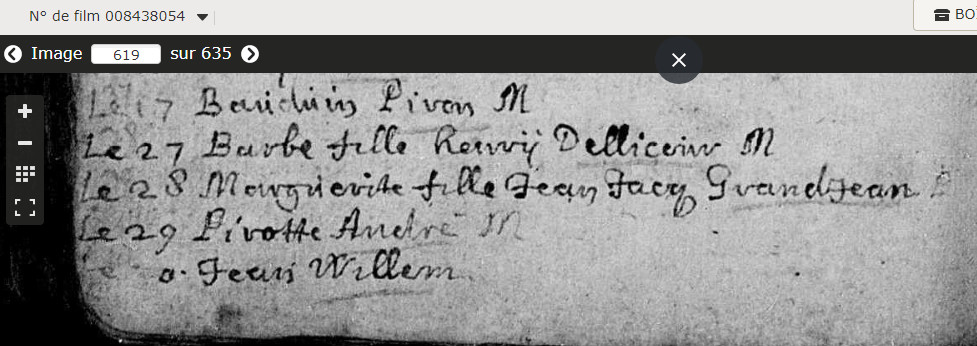 N° de film 008438054
BO
Image 619 sur 635
Le 17 Bauduin Pivon M
Le 27 Barbe fille Henrÿ Dellicour M
Le 28 Margueritte fille Jean Jacq Grandjean
Le 29 Pirotte André M
Le Jean Willem